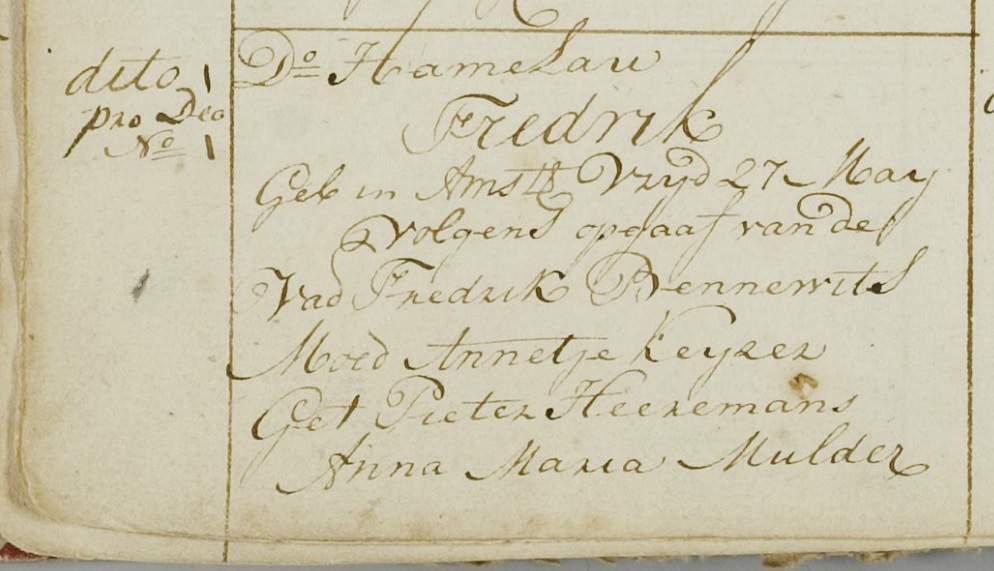 dito 1
pro Deo
No 1
Do Hamelau
Fredrik
Geb in Amst Vryd 27 May
volgens opgaaf van de
Vad Fredrik Bennewits
Moed Annetje Keyzer
Get Pieter Heeremans
Anna Maria Mulder